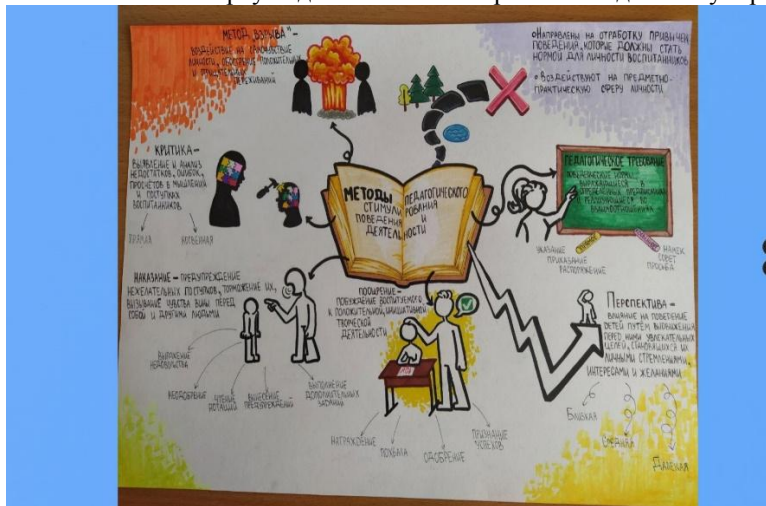 МЕТОД "ВЗРЫВА" –
ВОЗДЕЙСТВИЕ НА
ЛИЧНОСТИ, ПОЛОЖИТЕЛЬНЫХ
И ОТРИЦАТЕЛЬНЫХ
ПЕРЕЖИВАНИЙ
НАПРАВЛЕНЫ НА ОТРАБОТКУ ПРИВЫЧЕК
ПОВЕДЕНИЯ, КОТОРЫЕ ДОЛЖНЫ СТАТЬ
НОРМОЙ ДЛЯ ЛИЧНОСТИ ВОСПИТАННИКОВ
ВОЗДЕЙСТВУЮТ НА ПРЕДМЕТНО-
ПРАКТИЧЕСКУЮ СФЕРУ ЛИЧНОСТИ
КРИТИКА –
ВЫЯВЛЕНИЕ И АНАЛИЗ
НЕДОСТАТКОВ, ОШИБОК,
ПРОСЧЁТОВ В МЫШЛЕНИИ
И ПОСТУПКАХ
ВОСПИТАННИКОВ
ПРЯМАЯ
КОСВЕННАЯ
МЕТОДЫ ПЕДАГОГИЧЕСКОГО
СТИМУЛИРОВАНИЯ
ПОВЕДЕНИЯ И
ДЕЯТЕЛЬНОСТИ
ПЕДАГОГИЧЕСКОЕ ТРЕБОВАНИЕ
УКАЗАНИЕ
ПРИКАЗАНИЕ
РАСПОРЯЖЕНИЕ
НАМЕК
СОВЕТ
ПРОСЬБА
НАКАЗАНИЕ – ПРЕДУПРЕЖДЕНИЕ
НЕЖЕЛАТЕЛЬНЫХ ПОСТУПКОВ, ТОРМОЖЕНИЕ ИХ,
ВЫЗЫВАНИЕ ЧУВСТВА ВИНЫ ПЕРЕД
СОБОЙ И ДРУГИМИ ЛЮДЬМИ
ВЫРАЖЕНИЕ
НЕДОВОЛЬСТВА
НЕОДОБРЕНИЕ
ЧТЕНИЕ
НОТАЦИЙ
ВЫНЕСЕНИЕ
ПРЕДУПРЕЖДЕНИЙ
ВЫПОЛНЕНИЕ
ДОПОЛНИТЕЛЬНЫХ
ЗАДАНИЙ
ПООЩРЕНИЕ –
ПОБУЖДЕНИЕ ВОСПИТУЕМОГО
К ПОЛОЖИТЕЛЬНОЙ, ИНИЦИАТИВНОЙ
ТВОРЧЕСКОЙ
ДЕЯТЕЛЬНОСТИ
НАГРАЖДЕНИЕ
ПОХВАЛА
ОДОБРЕНИЕ
ПРИЗНАНИЕ
УСПЕХОВ
ПЕРСПЕКТИВА –
ВЛИЯНИЕ НА ПОВЕДЕНИЕ
ДЕТЕЙ ПУТЁМ ВЫДВИЖЕНИЯ
ПЕРЕД НИМИ УВЛЕКАТЕЛЬНЫХ
ЦЕЛЕЙ, СТАНОВЯЩИХСЯ ИХ
ЛИЧНЫМИ СТРЕМЛЕНИЯМИ,
ИНТЕРЕСАМИ И ЖЕЛАНИЯМИ
БЛИЗКАЯ
СРЕДНЯЯ
ДАЛЕКАЯ